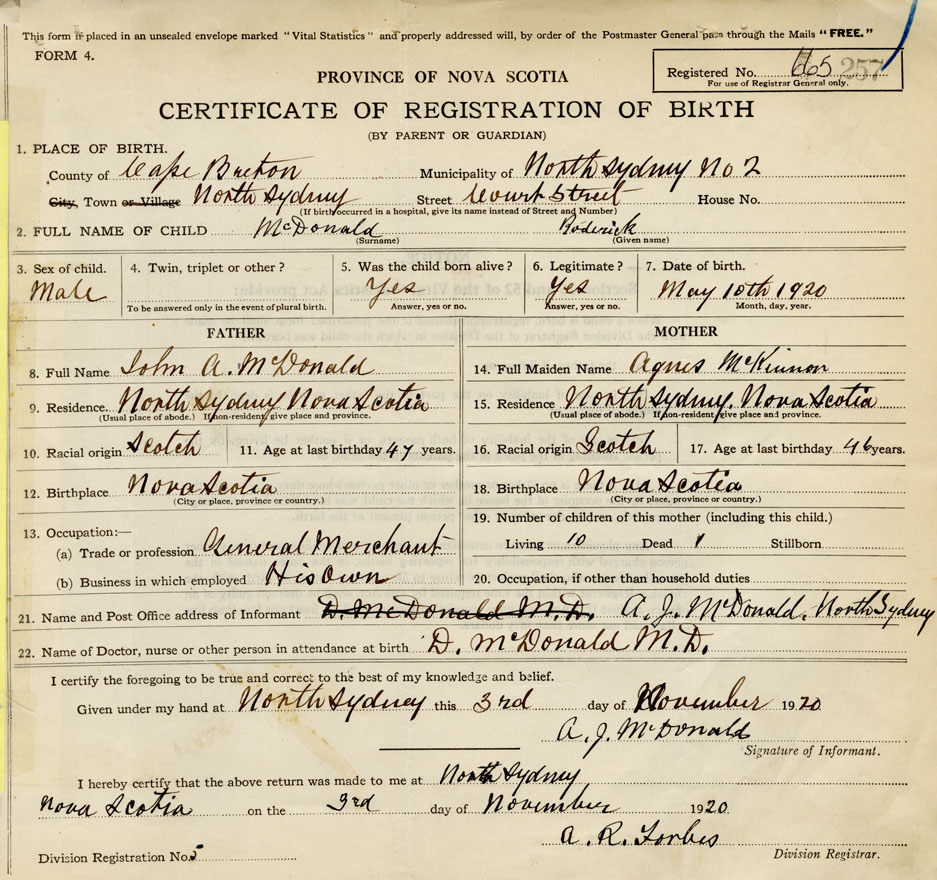 This form if placed in an unsealed envelope marked "Vital Statistics" and properly addressed will, by order of the Postmaster General pass through the Mails "FREE."
FORM 4.
Registered No. 665 257
For use of Registrar General only.
PROVINCE OF NOVA SCOTIA
CERTIFICATE OF REGISTRATION OF BIRTH
(BY PARENT OR GUARDIAN)
1. PLACE OF BIRTH.
County of Cape Breton Municipality of North Sydney No 2
City, Town or Village North Sydney Street Court Street House No.
(If birth occurred in a hospital, give its name instead of Street and Number)
2. FULL NAME OF CHILD McDonald Roderick
(Surname) (Given name)
3. Sex of child. 4. Twin, triplet or other? 5. Was the child born alive? 6. Legitimate? 7. Date of birth.
Male Yes Yes May 10th 1920
To be answered only in the event of plural birth. Answer, yes or no. Answer, yes or no. Month, day, year.
FATHER MOTHER
8. Full Name John A. McDonald 14. Full Maiden Name Agnes McKinnon
9. Residence. North Sydney Nova Scotia 15. Residence North Sydney, Nova Scotia
(Usual place of abode.) If non-resident, give place and province. (Usual place of abode.) If non-resident give place and province.
10. Racial origin Scotch 11. Age at last birthday 47 years. 16. Racial origin Scotch 17. Age at last birthday 46 years.
12. Birthplace Nova Scotia 18. Birthplace Nova Scotia
(City or place, province or country.) (City or place, province or country.)
13. Occupation:— 19. Number of children of this mother (including this child.)
(a) Trade or profession General Merchant Living 10 Dead 1 Stillborn
(b) Business in which employed His Own 20. Occupation, if other than household duties
21. Name and Post Office address of Informant D. McDonald M.D. A. J. McDonald, North Sydney
22. Name of Doctor, nurse or other person in attendance at birth D. McDonald M.D.
I certify the foregoing to be true and correct to the best of my knowledge and belief.
Given under my hand at North Sydney this 3rd day of November 1920
A. J. McDonald
Signature of Informant.
I hereby certify that the above return was made to me at North Sydney
Nova Scotia on the 3rd day of November 1920
A. R. Forbes
Division Registration No. 5 Division Registrar.